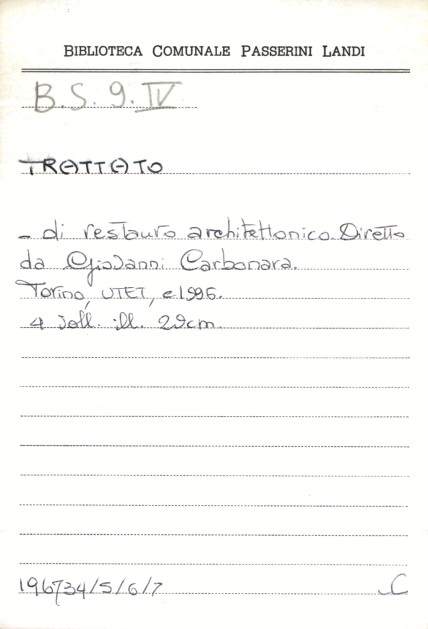 BIBLIOTECA COMUNALE PASSERINI LANDI
B.S. 9. IV
TRATTATO
- di restauro architettonico. Diretto
da Giovanni Carbonara.
Torino, UTET, c1996.
4 voll. ill. 29cm.
196734/5/6/7
C